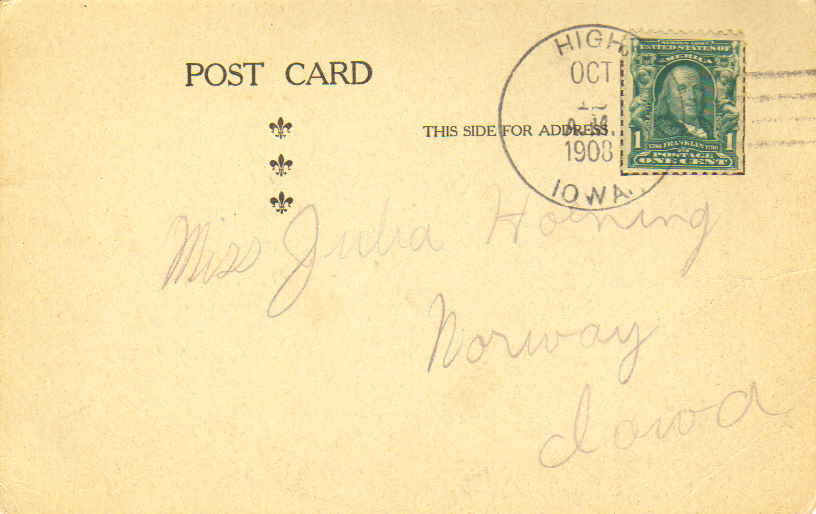 POST CARD
THIS SIDE FOR ADDRESS
HIGH
OCT
A.M.
1908
IOWA.
UNITED STATES OF
AMERICA
1 FRANKLIN 1
POSTAGE
ONE CENT
Miss Julia Hoening
Norway
Iowa